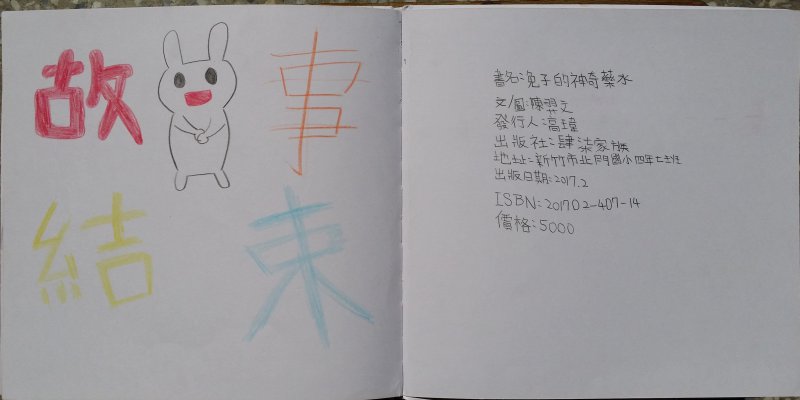 故事
結束
書名:兔子的神奇藥水
文/圖:陳羿文
發行人:高瑋
出版社:肆柒家族
地址:新竹市北門國小四年七班
出版日期:2017.2
ISBN:201702-407-14
價格:5000